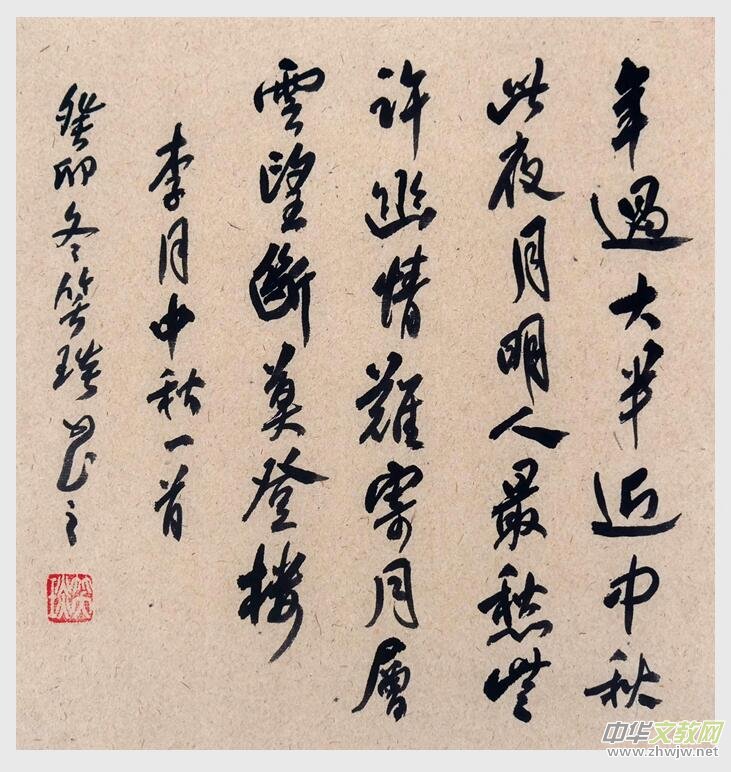 年過大半近中秋
此夜月明人最愁些
許幽情難寄月層
雲望斷莫登樓
李月中秋一首
癸卯冬笑琰
中华文教网
www.zhwjw.net